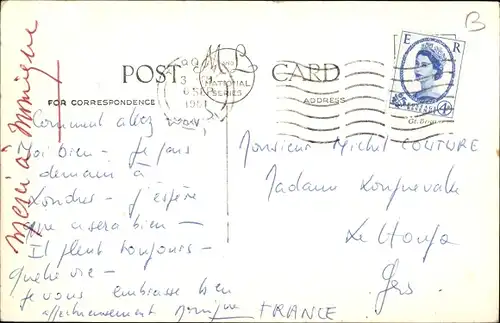 B
E R
4D
M L
POST CARD
AND
NATIONAL
SERIES
FOR CORRESPONDENCE
ADDRESS
merci à Monique
Comment allez vous
Moi bien – je pars
demain à
Londres – j'espère
que ce sera bien –
Il pleut toujours –
quelle vie –
je vous embrasse bien
affectueusement Monique
Monsieur Michel COUTURE
Madame
Le Houga
Gers
FRANCE